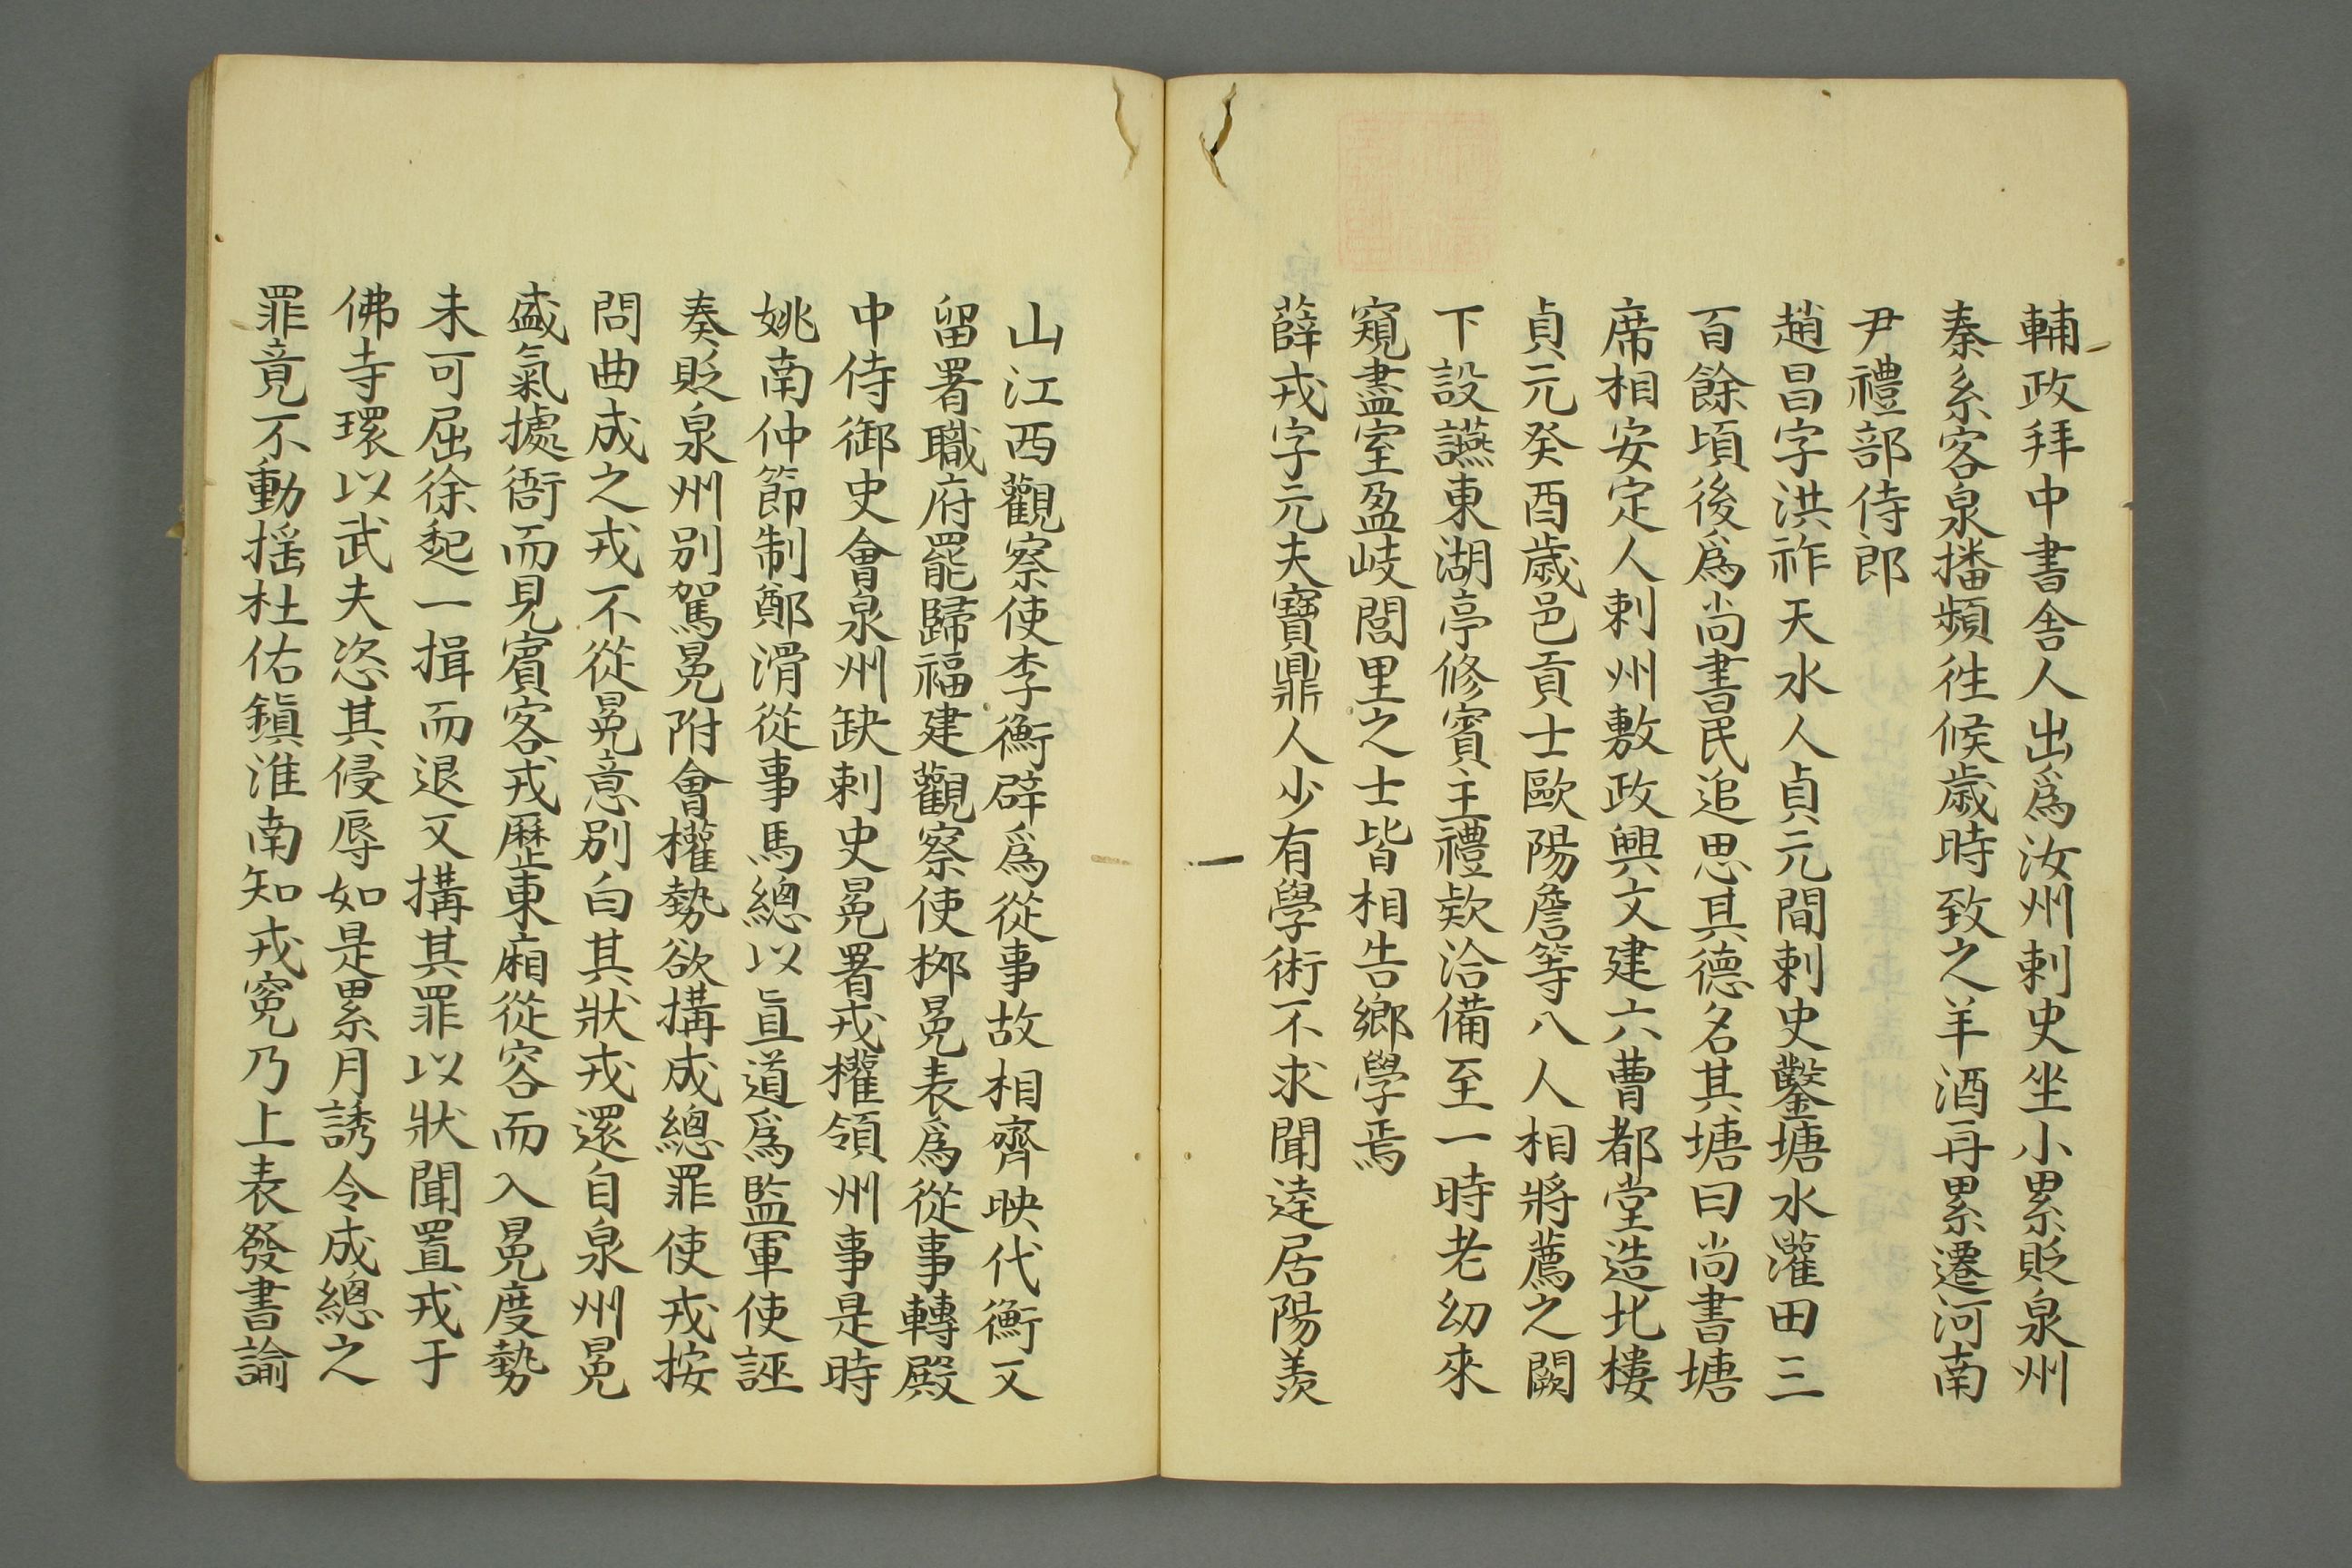 輔政拜中書舎人出爲汝州剌史坐小累貶泉州
秦系客泉播頻徃候歲時致之羊酒再累遷河南
尹禮部侍郎
趙昌字洪祚天水人貞元間剌史鑿塘水灌田三
百餘頃後爲尚書民追思其德名其塘曰尚書塘
席相安定人剌州敷政興文建六曹都堂造北樓
貞元癸酉歲邑貢士歐陽詹等八人相將薦之闕
下設讌東湖亭修賓主禮欵洽備至一時老幼來
窺盡室盈岐閭里之士皆相告鄉學焉
薛戎字元夫寶鼎人少有學術不求聞逹居陽羨
山江西觀察使李衡辟爲從事故相齊映代衡又
留署職府罷歸福建觀察使桞冕表爲從事轉殿
中侍御史會泉州缺剌史冕署戎權領州事是時
姚南仲節制鄭滑從事馬總以直道爲監軍使誣
奏貶泉州別駕冕附會權勢欲搆成總罪使戎按
問曲成之戎不從冕意別白其狀戎還自泉州冕
盛氣據衙而見賓客戎歷東廂從容而入冕度勢
未可屈徐起一揖而退又搆其罪以狀聞置戎于
佛寺環以武夫恣其侵辱如是累月誘令成總之
罪竟不動揺杜佑鎭淮南知戎寃乃上表發書諭